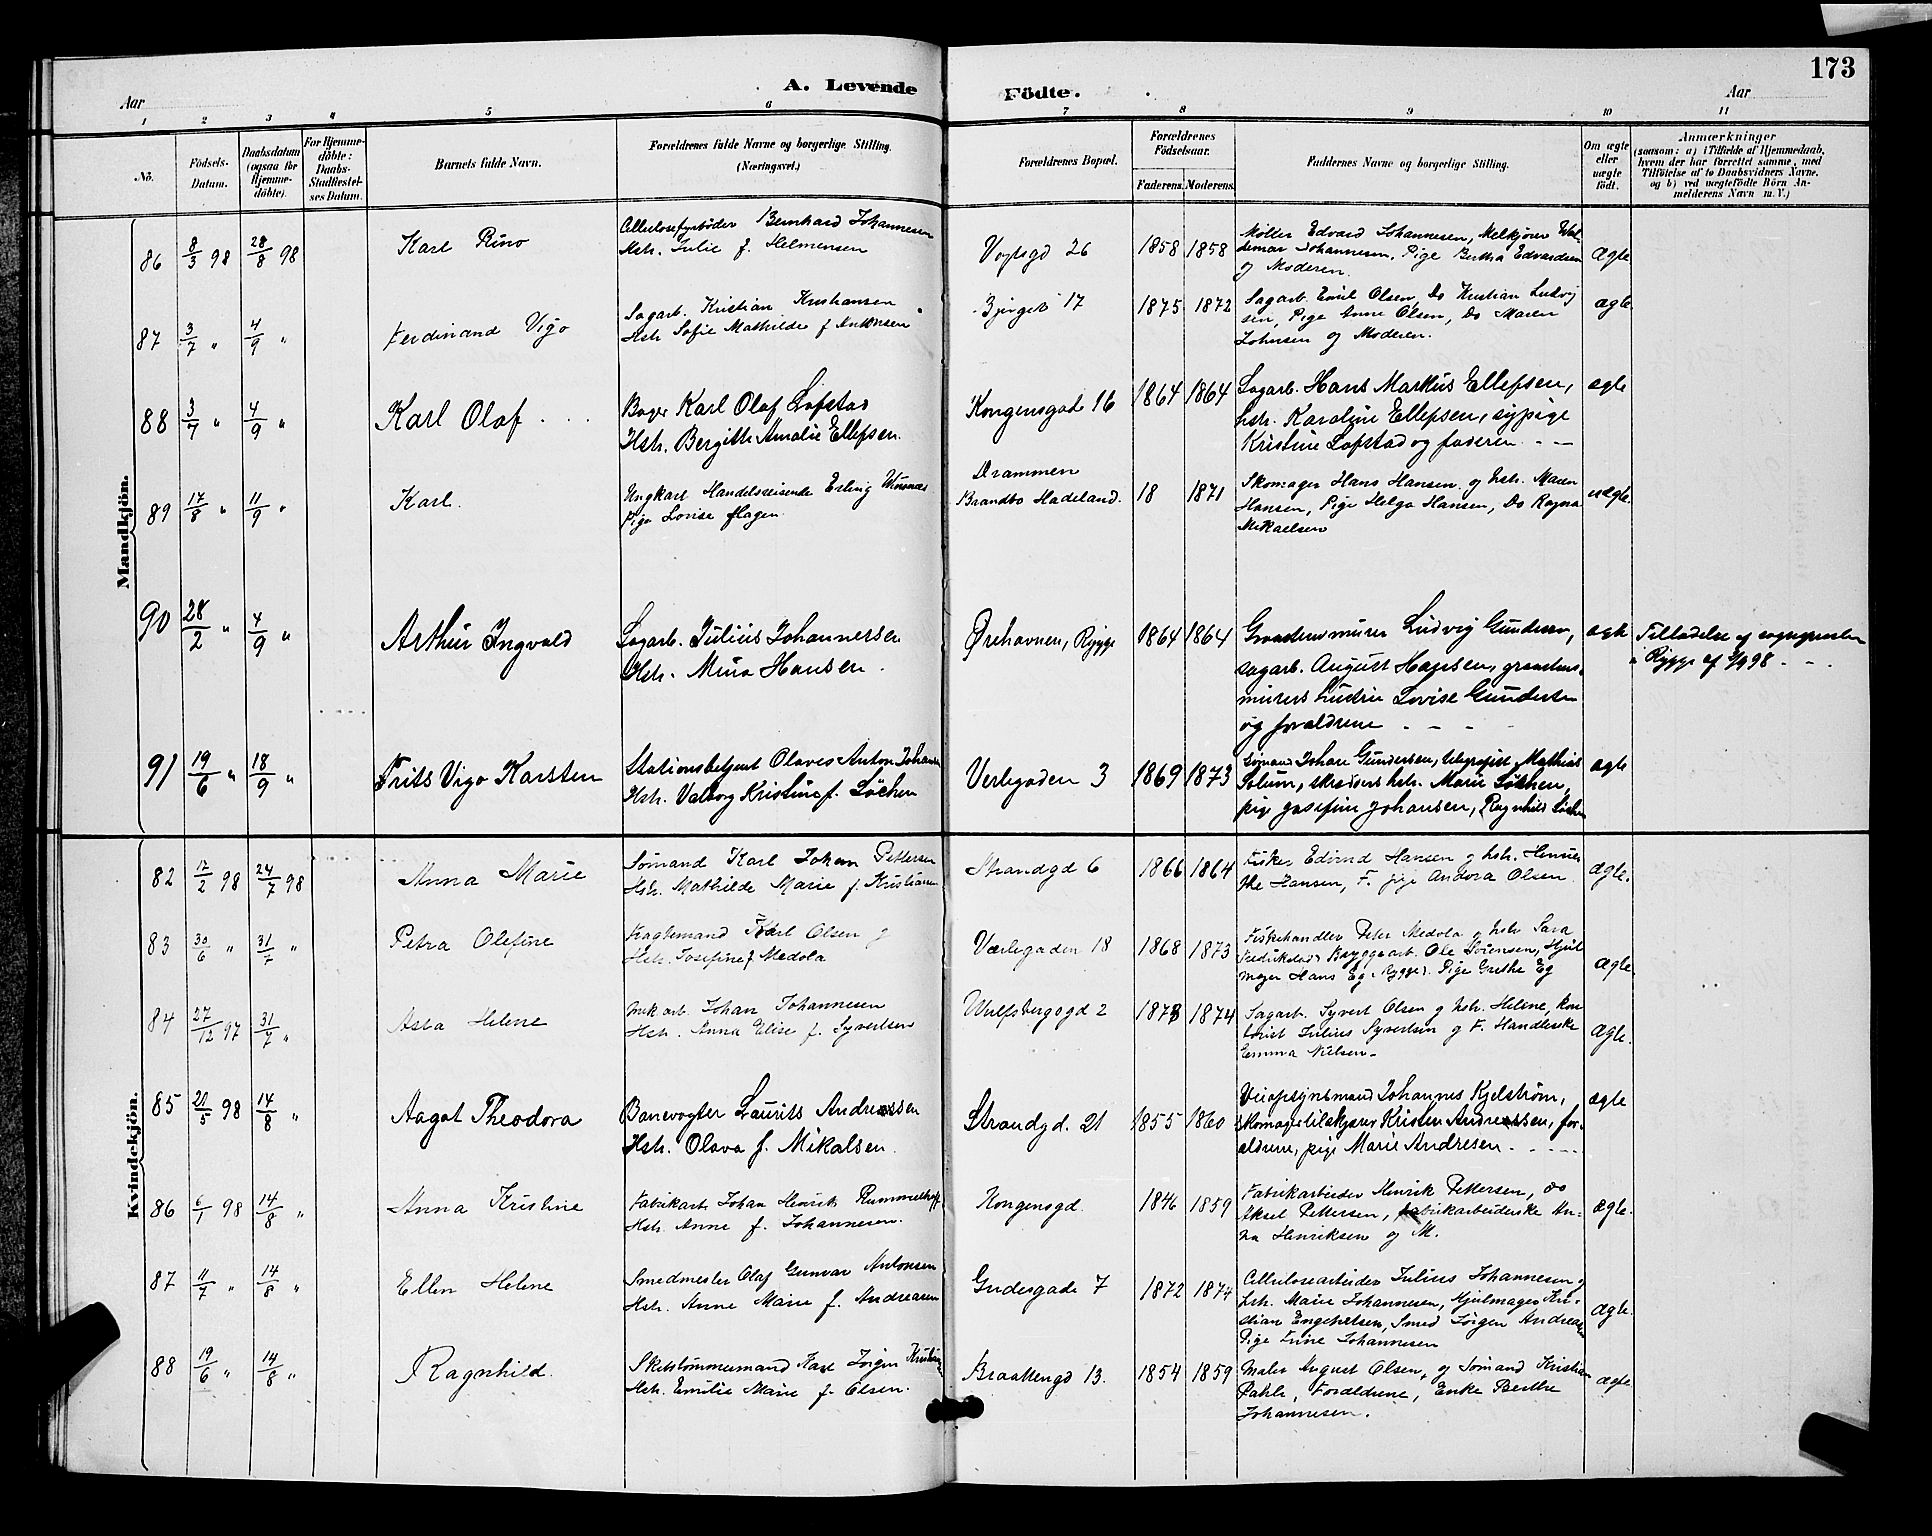 173
A. Levende Födte.
Aar
Aar
1 2 3 4 5 6 7 8 9 10 11
No.
Födsels-
Datum.
Daabsdatum
(ogsaa for
Hjemme-
döbte).
For Hjemme-
döbte:
Daabs-
Stadfæstel-
ses Datum.
Barnets fulde Navn.
Forældrenes fulde Navne og borgerlige Stilling.
(Næringsvei.)
Forældrenes Bopæl.
Forældrenes
Födselsaar.
Faderens. Moderens.
Faddernes Navne og borgerlige Stilling.
Om ægte
eller
uægte
født.
Anmærkninger
(saasom: a) i Tilfælde af Hjemmedaab,
hvem der har forrettet samme, med
Tilföielse af to Daabsvidners Navne,
og b) ved uægtefödte Börn An-
melderens Navn m. V.)
Mandkjön.
86 8/3 98 28/8 98 Karl Rino
Cellulosefyrbøder Bernhard Johannesen
Hstr. Julie f. Helmensen
Vogtsgd 26 1858 1858
Møller Edvard Johannesen, Melkjører Wal-
demar Johannesen, Pige Bertha Edvardsen
og Moderen.
Ægte
87 3/7 " 4/9 " Ferdinand Vigo
Sagarb. Kristian Kristiansen
Hstr Sofie Mathilde f Knutsen
Bjerget 17 1875 1872
Sagarb. Emil Olsen, Do Kristian Ludvig
sen, Pige Anne Olsen, Do Maren
Johnsen og Moderen.
ægte
88 3/7 " 4/9 " Karl Olaf
Bager Karl Olaf Løfstad
Hstr. Bergitte Amalie Ellefsen.
Kongensgade 16 1864 1864
Sagarb. Hans Markus Ellefsen,
hstr. Karoline Ellefsen, sypige
Kristine Løfstad og faderen
ægte
89 17/8 " 11/9 " Karl.
Ungkarl Handelsreisende Erling
Pige Lovise Hagen
Drammen
Brandbo Hadeland. 18 1871
Skomager Hans Hansen og hstr. Maren
Hansen, Pige Helga Hansen, Do Ragna
Mikaelsen
uægte.
90 28/2 " 4/9 " Arthur Ingvald
Sagarb. Julius Johannessen
Hstr. Mina Hansen.
Ørehavnen, Rygge 1864 1864
Graastensmurer Ludvig Gundersen,
sagarb. August Hansen, graastens-
murers hustru Lovise Gundersen
og forældrene
ægte
Tilladelse af sognepresten
i Rygge af 3/9 98
91 19/6 " 18/9 " Frits Vigo Karsten
Stationsbetjent Olaves Anton Johansen
Hstr. Valborg Kristine f. Löchen
Verlegaden 3 1869 1873
Sømand Johan Gundersen, telegrafist Mathias
Solum, skrædders hstr. Marie Löchen,
pige Josefine Johansen, Ragnhild Löchen
ægte
Kvindekjön.
82 17/2 98 24/7 98 Anna Marie
Sømand Karl Johan Pettersen
Hstr. Mathilde Marie f. Kristiansen
Strandgd 6 1866 1864
Fisker Edvind Hansen og hstr. Henriet-
the Hansen, F. pige Andora Olsen
Ægte.
83 30/6 " 31/7 " Petra Olefine
Fragtemand Karl Olsen og
Hstr. Josefine f Medola
Værlegaden 18 1868 1873
Fiskehandler Peter Medola og hstr Sara
Fredrikstad, Bryggearb. Ole Sørensen, Hjul
mager Hans Eg, Rygge. Pige Grethe Eg
Ægte
84 27/12 97 31/7 " Asta Helene
Mek arb. Johan Johannesen
Hstr. Anna Elise f. Syvertsen
Wulfsbergsgd 2 1873 1874
Sagarb. Syvert Olsen og hstr. Helene, kon
torist Julius Syvertsen og F. Handlerske
Emma Nielsen.
Ægte.
85 21/5 98 14/8 " Aagot Theodora
Banevogter Laurits Andreassen
Hstr. Olava f. Mikalsen.
Strandgd. 21 1855 1860
Veiopsynsmand Johannes Kjelstrøm,
skomagertilskjærer Kristen Andreassen, for-
ældrene, pige Marie Andresen.
ægte
86 6/1 98 14/8 " Anna Kristine
Fabrikarb Johan Henrik Rummelhoff
Hstr. Anne f. Johannesen.
Kongensgd. 1846 1859
Fabrikarbeider Henrik Pettersen, do
Aksel Pettersen, fabrikarbeiderske An-
na Henriksen og M.
Ægte.
87 11/7 " 14/8 " Ellen Helene
Smedmester Olaf Gunvar Antonsen
Hstr. Anne Marie f. Andreasen
Gudesgade 7 1872 1874
Cellulosearbeider Julius Johannesen og
hstr. Marie Johannesen, Hjulmager Kri-
stian Engebretsen, Smed Jørgen Andreasen
Pige Trine Johannesen
Ægte.
88 19/6 " 14/8 " Ragnhild.
Skibstømmermand Karl Jørgen
Hstr. Emilie Marie f. Olsen.
Braattengd 13. 1854 1859
Maler August Olsen, og Sømand Kristian
Dahle, Forældrene, Enke Berthe
Johannesen.
ægte